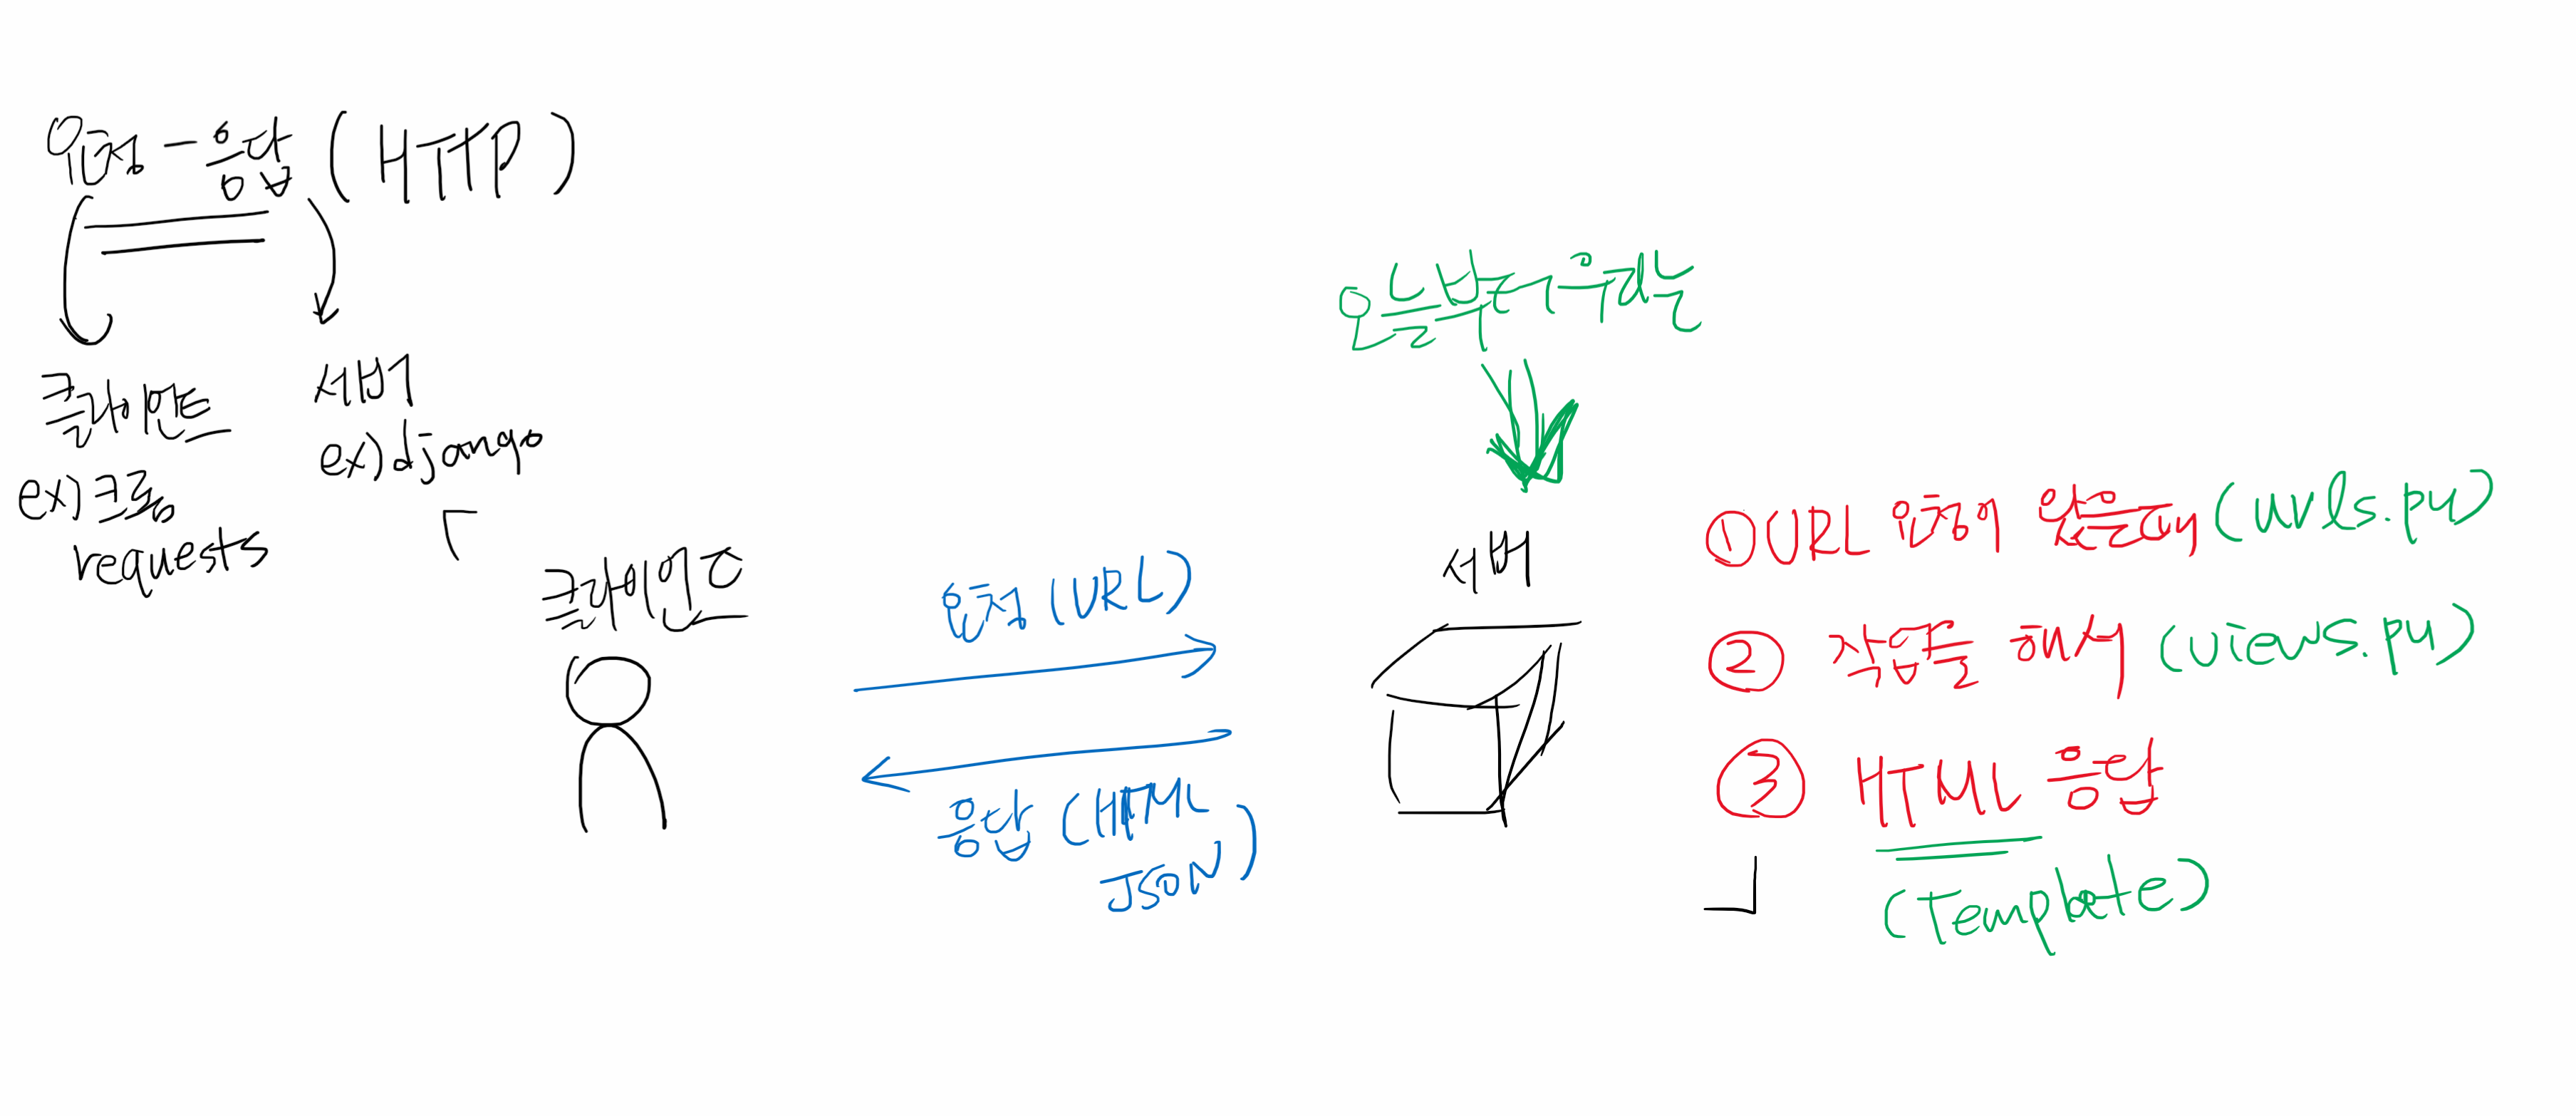 요청-응답 (HTTP)
클라이언트
ex) 크롬
requests
서버
ex) django
클라이언트
요청 (URL)
응답 (HTML
JSON)
오늘부터 우리는
서버
① URL 요청이 왔을때 (urls.py)
② 작업을 해서 (views.py)
③ HTML 응답
(Template)